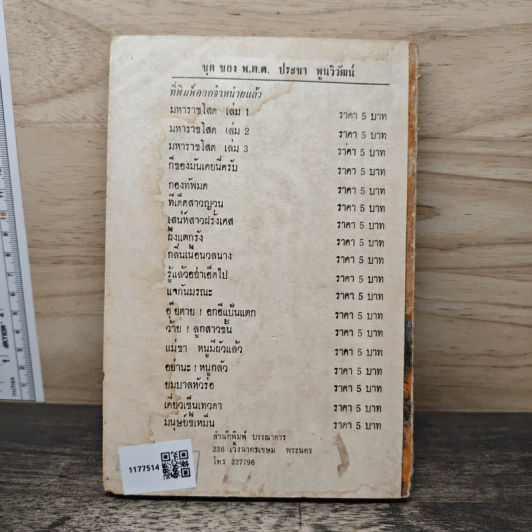 ชุด ของ พ.ต.ต. ประชา พูนวิวัฒน์
ที่พิมพ์ออกจำหน่ายแล้ว
มหาราชโสด เล่ม 1 ราคา 5 บาท
มหาราชโสด เล่ม 2 ราคา 5 บาท
มหาราชโสด เล่ม 3 ราคา 5 บาท
ก็ของมันเคยนี่ครับ ราคา 5 บาท
กองทัพมด ราคา 5 บาท
ทีเด็ดสาวญวน ราคา 5 บาท
เสน่ห์สาวฝรั่งเศส ราคา 5 บาท
ผึ้งแตกรัง ราคา 5 บาท
กลิ่นเนื้อนวลนาง ราคา 5 บาท
รู้แล้วอย่าเอ็ดไป ราคา 5 บาท
แจกันมรณะ ราคา 5 บาท
อุ๊ยตาย ! อกอีแป้นแตก ราคา 5 บาท
ว้าย ! ลูกสาวขั้น ราคา 5 บาท
แม่ขา หนูมีผัวแล้ว ราคา 5 บาท
อย่านะ ! หนูกลัว ราคา 5 บาท
ยมบาลหัวร่อ ราคา 5 บาท
เคี่ยวเข็ญเทวดา ราคา 5 บาท
มนุษย์ขี้เหม็น ราคา 5 บาท
สำนักพิมพ์ บรรณาคาร
236 เวิ้งนาครเขษม พระนคร
โทร 227796
1177514